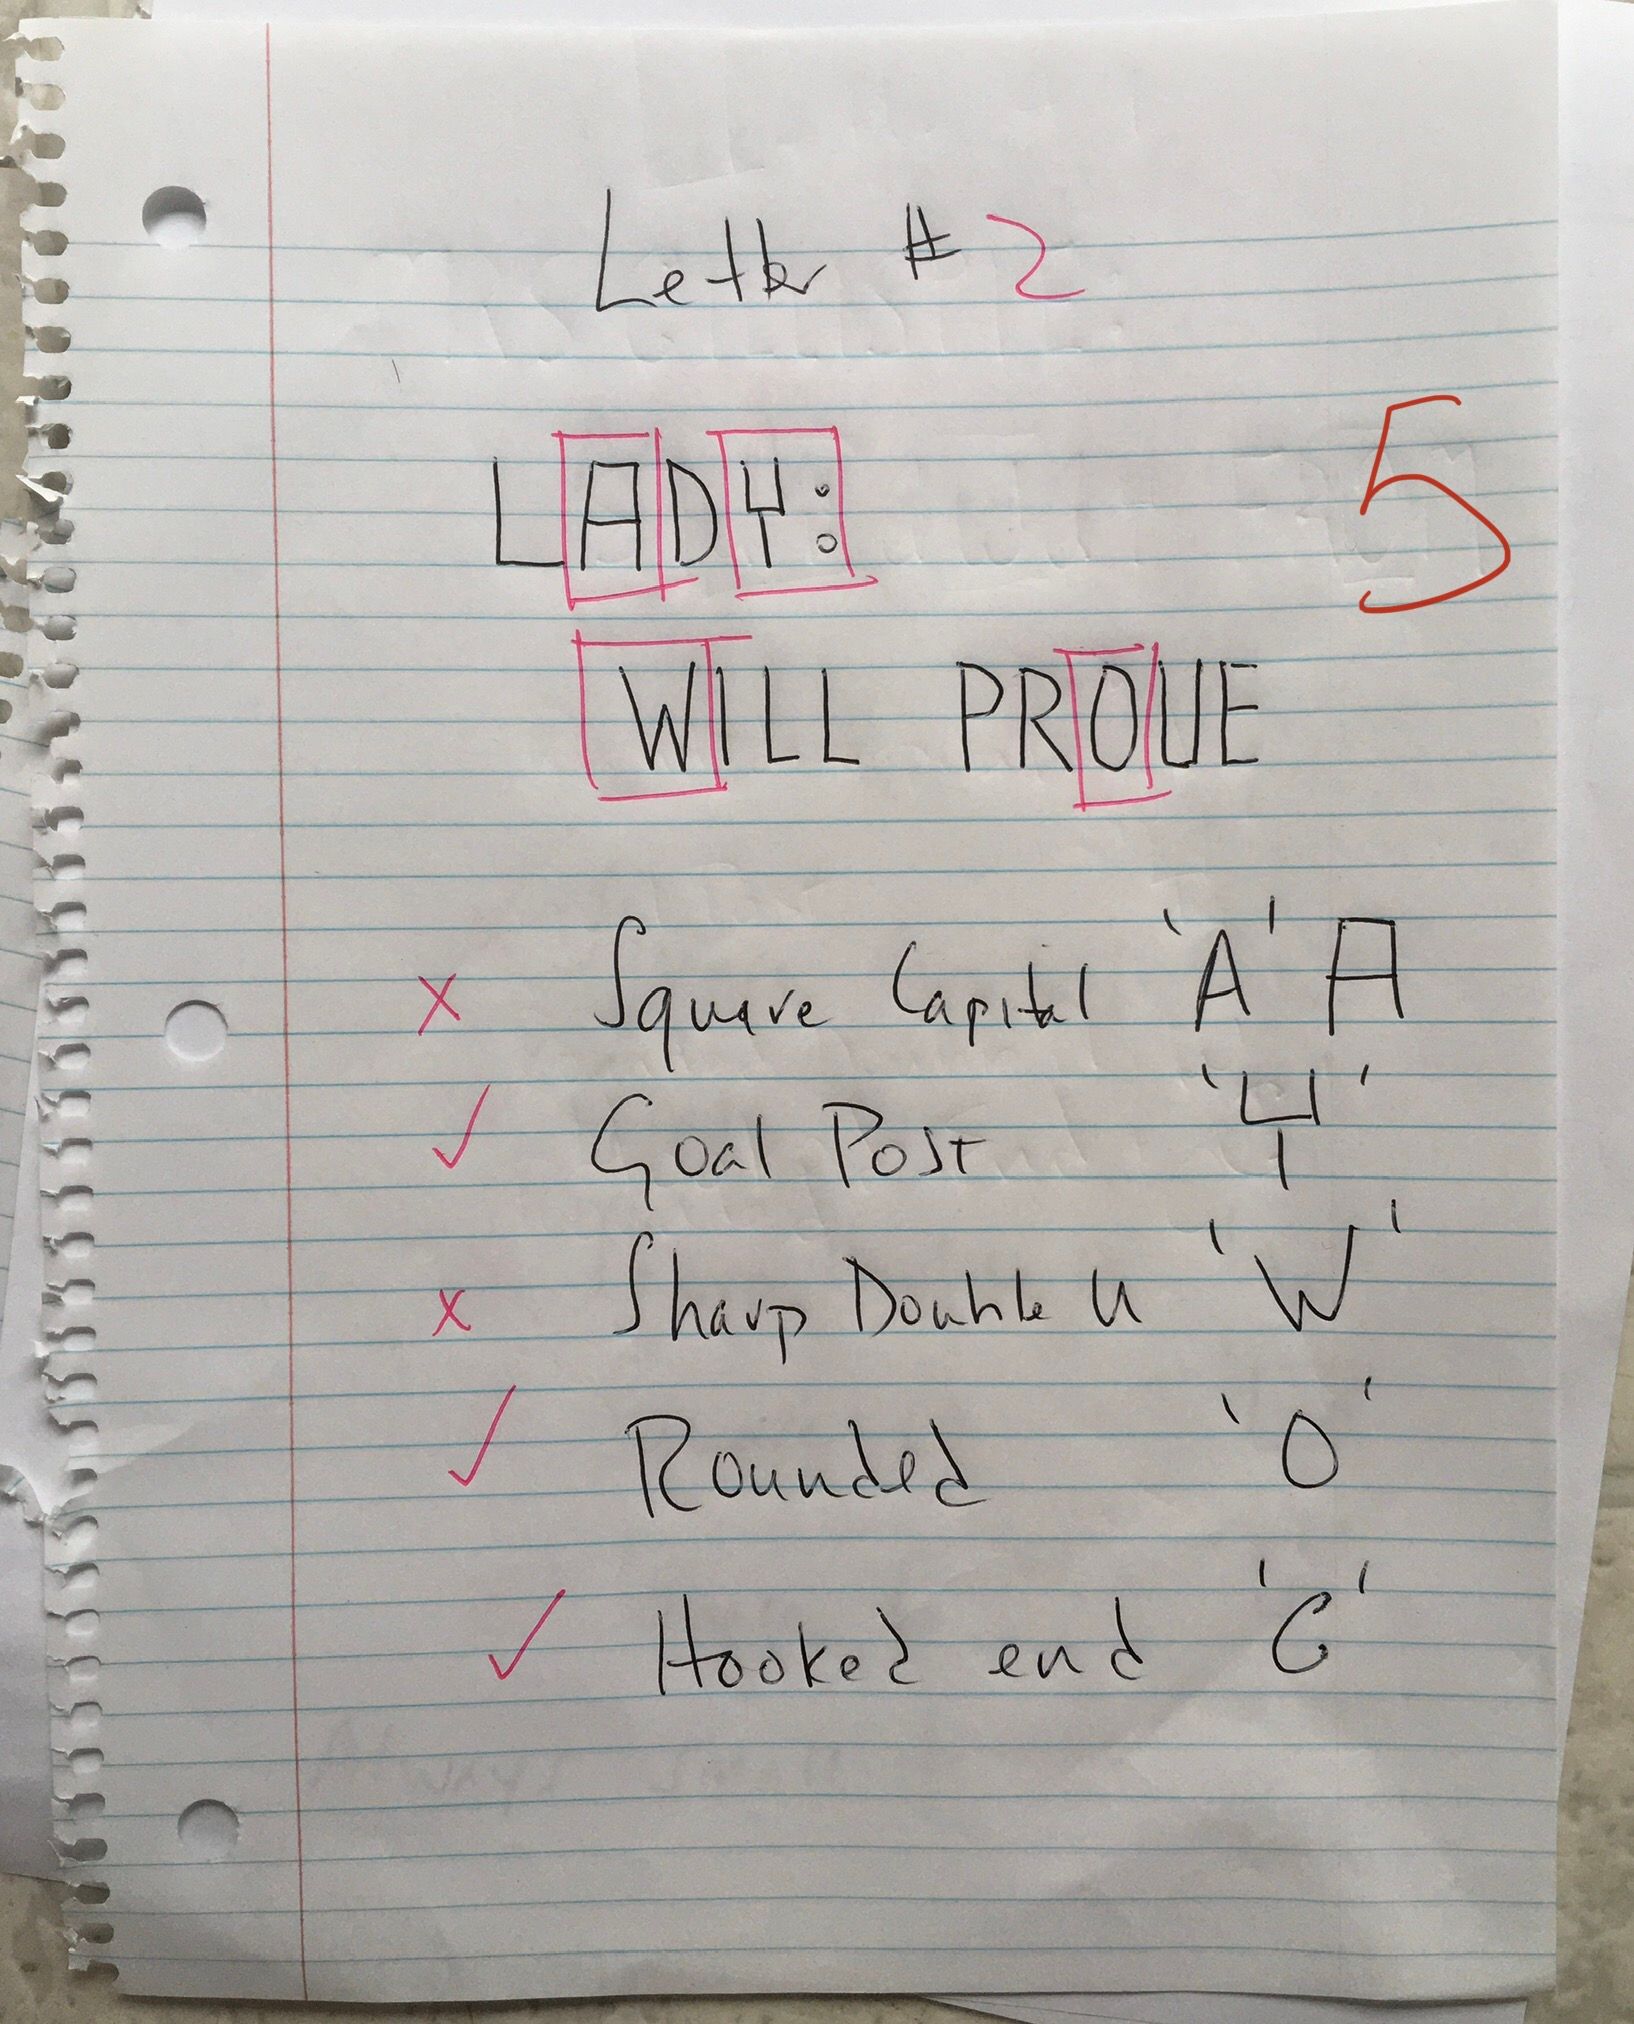 Letter # 2
LADY:
5
WILL PROUE
x Square Capital 'A' A
✓ Goal Post 'Y'
x Sharp Double U 'W'
✓ Rounded 'O'
✓ Hooked end 'C'